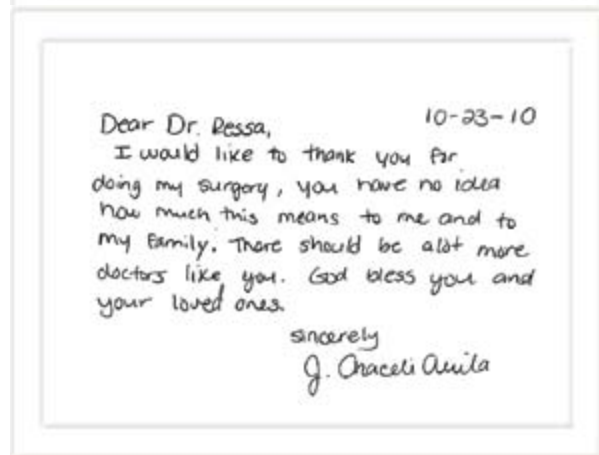 10-23-10
Dear Dr. Ressa,
I would like to thank you for
doing my surgery, you have no idea
how much this means to me and to
my family. There should be alot more
doctors like you. God bless you and
your loved ones.
sincerely
J. Araceli Avila